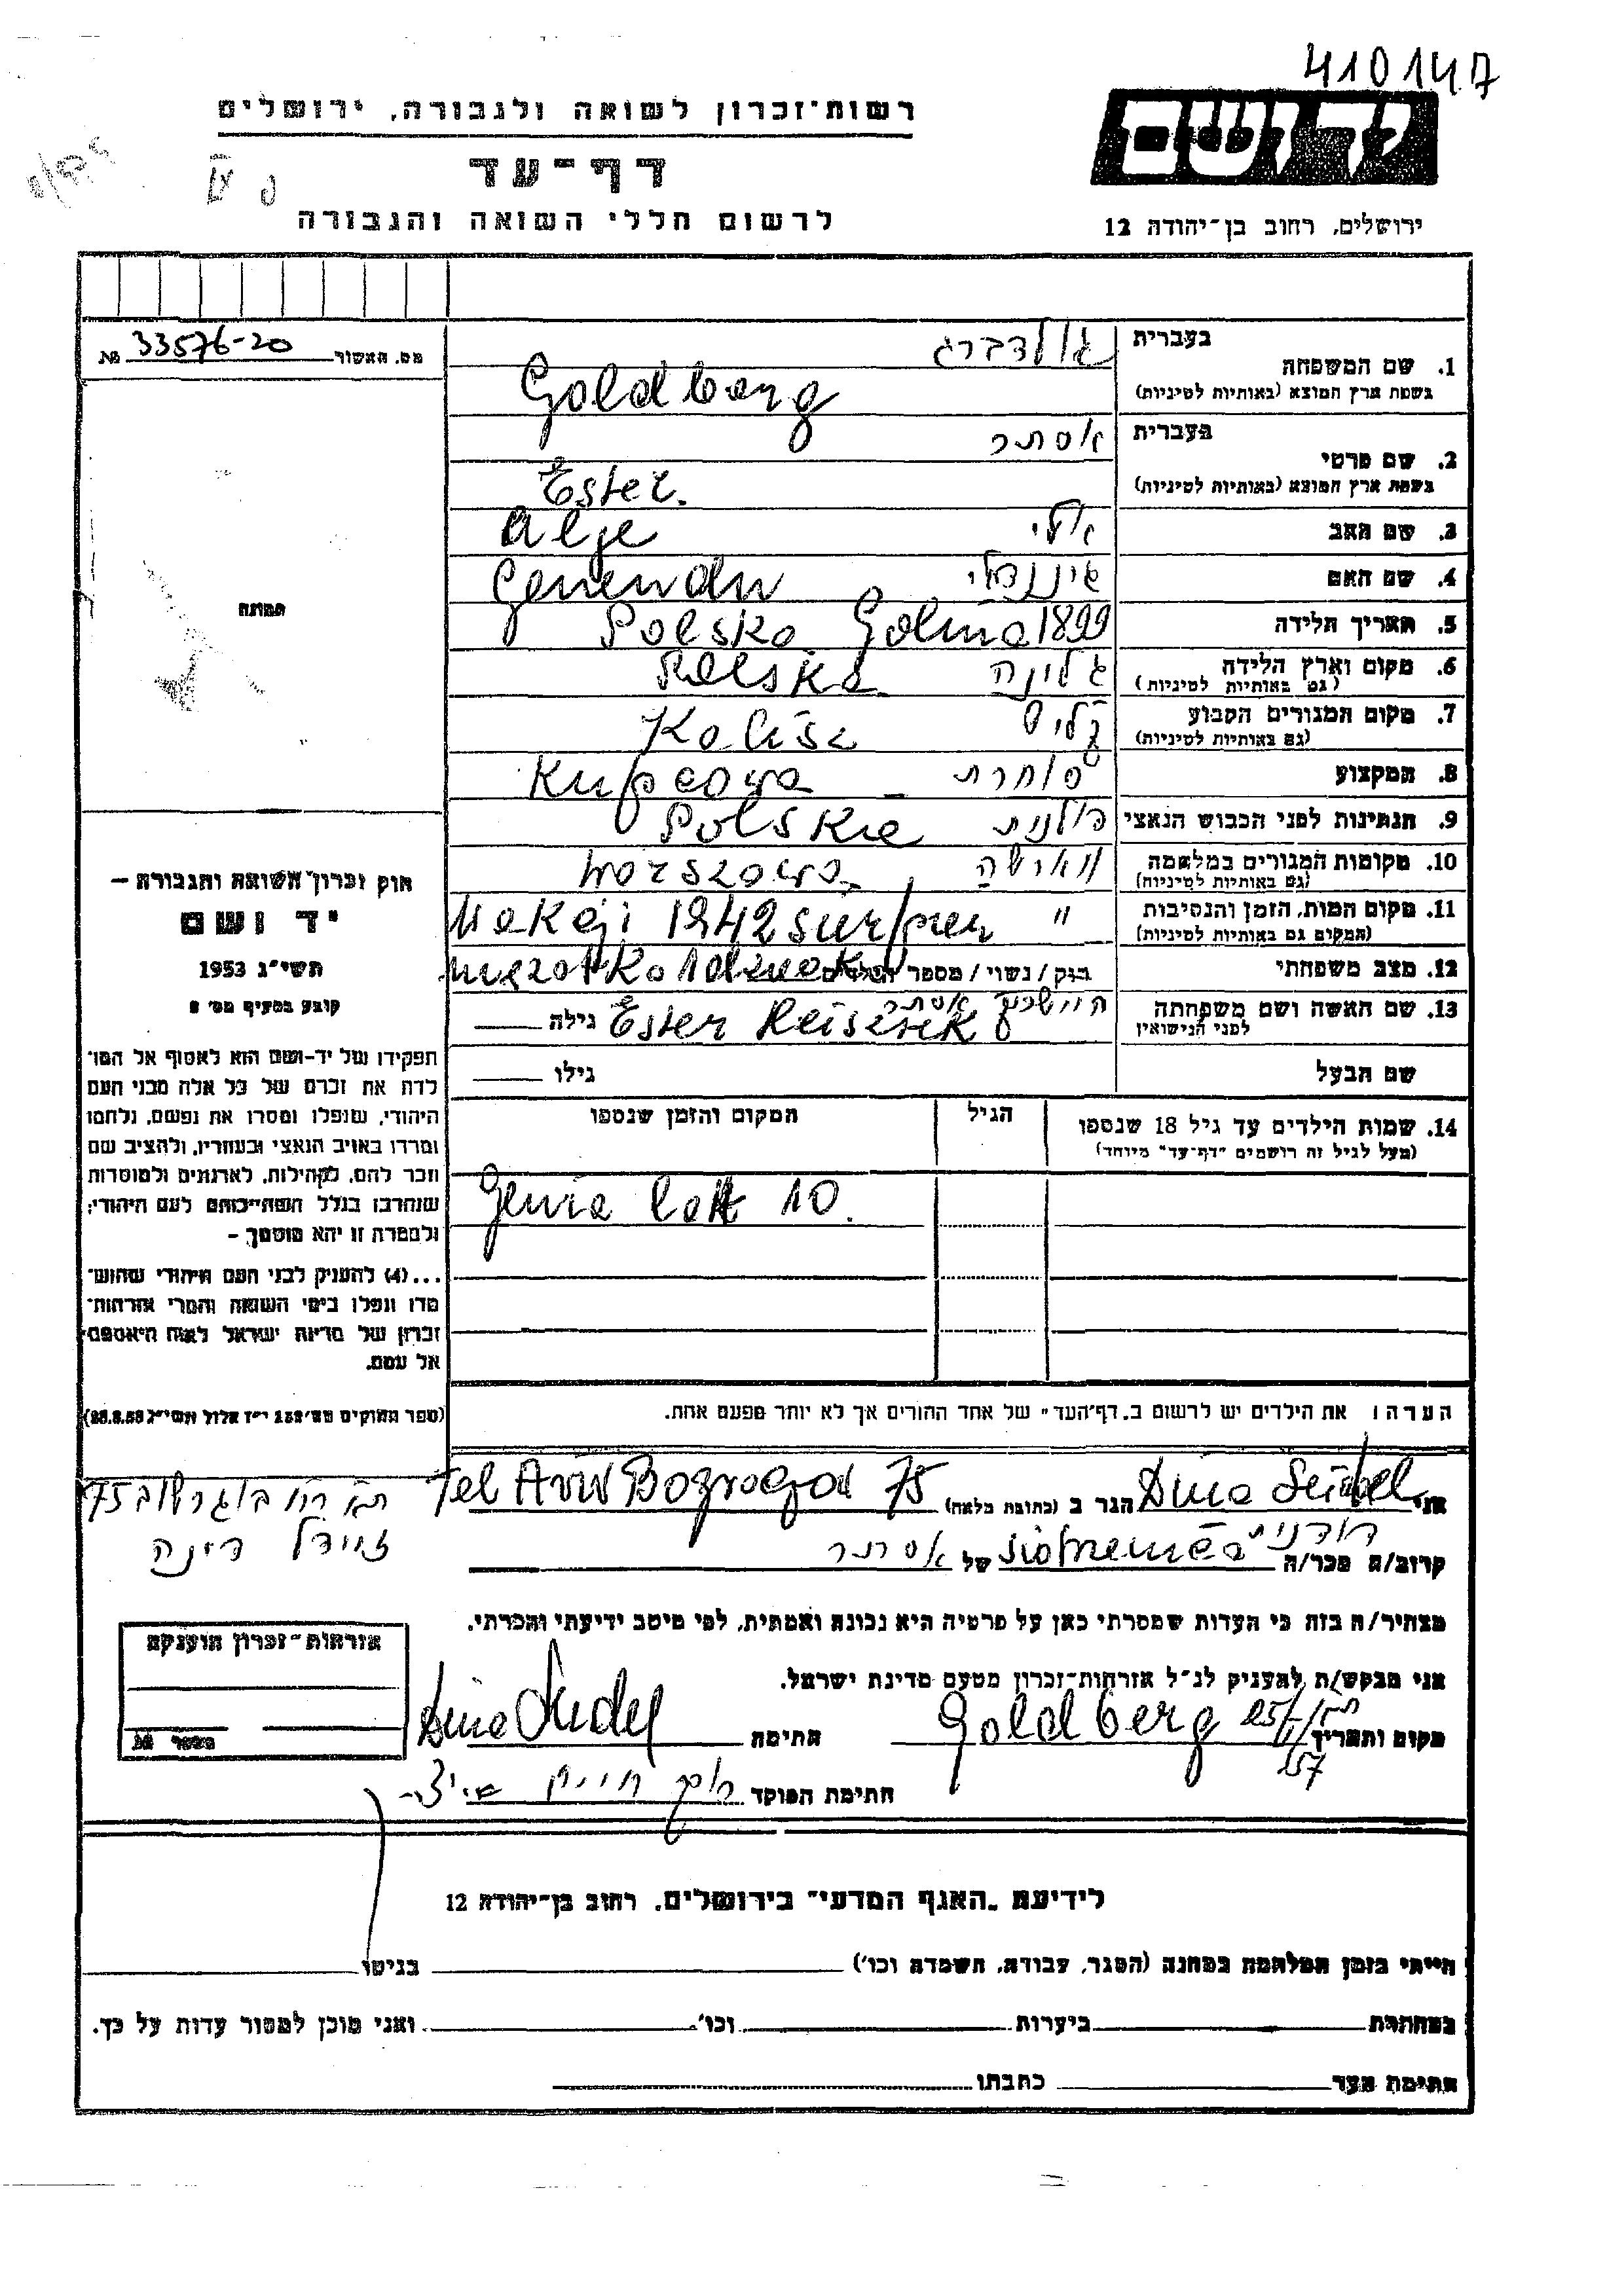 410147
רשות־זכרון לשואה ולגבורה, ירושלים
יד ושם
דף־עד
לרשום חללי השואה והגבורה
ירושלים, רחוב בן־יהודה 12
מס. האשור 33576-20 №
1. שם המשפחה בעברית גולדברג
בשפת ארץ המוצא (באותיות לטיניות) Goldberg
2. שם פרטי בעברית אסתר
בשפת ארץ המוצא (באותיות לטיניות) Ester.
3. שם האב אלי Alje
4. שם האם
5. תאריך הלידה 1899 Polska Golina
6. מקום וארץ הלידה גלינה Polska
(גם באותיות לטיניות)
7. מקום המגורים הקבוע קליש Kalisz
(גם באותיות לטיניות)
8. המקצוע סוחרת Kupcowa
9. הנתינות לפני הכבוש הנאצי פולנית Polskie
10. מקומות המגורים במלחמה ווארשה Warszawa
(גם באותיות לטיניות)
11. מקום המות, הזמן והנסיבות " 1942
(המקום גם באותיות לטיניות)
12. מצב משפחתי רווק / נשוי / מספר הילדים
13. שם האשה ושם משפחתה אסתר Ester גילה
לפני הנישואין
שם הבעל גילו
14. שמות הילדים עד גיל 18 שנספו
(מעל לגיל זה רושמים "דף־עד" מיוחד)
הגיל
המקום והזמן שנספו
Genia lat 10.
הערה: את הילדים יש לרשום ב"דף־העד" של אחד ההורים אך לא יותר מפעם אחת.
תמונה
חוק זכרון השואה והגבורה –
יד ושם
תשי"ג 1953
קובע בסעיף מס' 2
תפקידו של יד־ושם הוא לאסוף אל המו־
לדת את זכרם של כל אלה מבני העם
היהודי, שנפלו ומסרו את נפשם, נלחמו
ומרדו באויב הנאצי ובעוזריו, ולהציב שם
וזכר להם, לקהילות, לארגונים ולמוסדות
שנחרבו בגלל השתייכותם לעם היהודי;
ולמטרת זו יהא מוסמך –
...(4) להעניק לבני העם היהודי שהוש־
מדו ונפלו בימי השואה והמרי אזרחות־
זכרון של מדינת ישראל לאות היאספם
אל עמם.
(ספר החוקים מס' 132 י"ז אלול תשי"ג 28.8.53)
אני Dina Seidel הגר ב (כתובת מלאה) Tel Aviv 75
ת"א רח' בוגרשוב 75
זיידל דינה
קרוב/ה מכר/ה דודנית של אסתר
מצהיר/ה בזה כי העדות שמסרתי כאן על פרטיה היא נכונה ואמתית, לפי מיטב ידיעתי והכרתי.
אני מבקש/ת להעניק לנ"ל אזרחות־זכרון מטעם מדינת ישראל.
מקום ותאריך Goldberg חתימה Dina Seidel
חתימת הפוקד
אזרחות־זכרון הוענקה
מספר №
לידיעת "האגף המדעי" בירושלים, רחוב בן־יהודה 12
הייתי בזמן המלחמה במחנה (הסגר, עבודה, השמדה וכו') בגיטו
במחתרת ביערות וכו' ואני מוכן למסור עדות על כך.
חתימת העד כתבתו